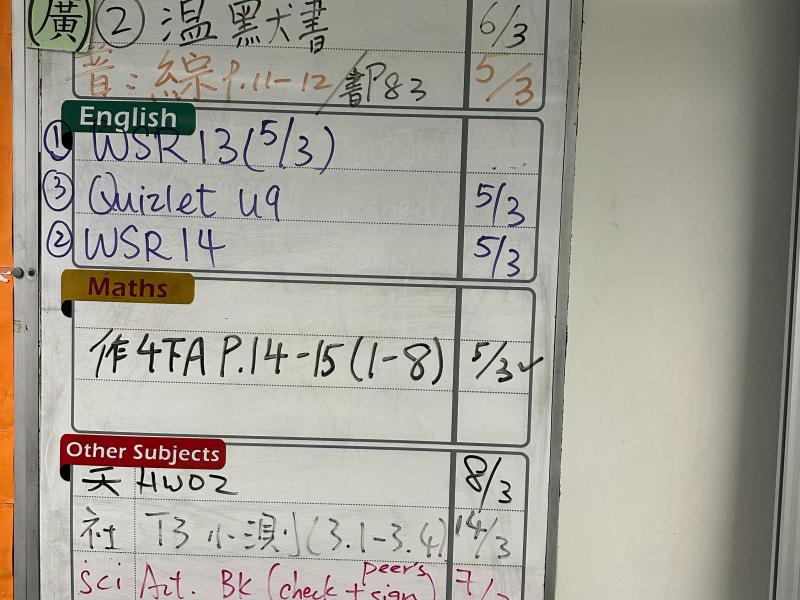 (黃) ② 溫 黑犬書 6/3
音: 綜 P.11-12/書P83 5/3
English
① WSR 13 (5/3)
③ Quizlet u9 5/3
② WSR 14 5/3
Maths
作 4下A P.14-15 (1-8) 5/3✓
Other Subjects
天 HW02 8/3
社 T3 小測 (3.1-3.4) 14/3
sci Act. BK (check + peer's sign) 7/